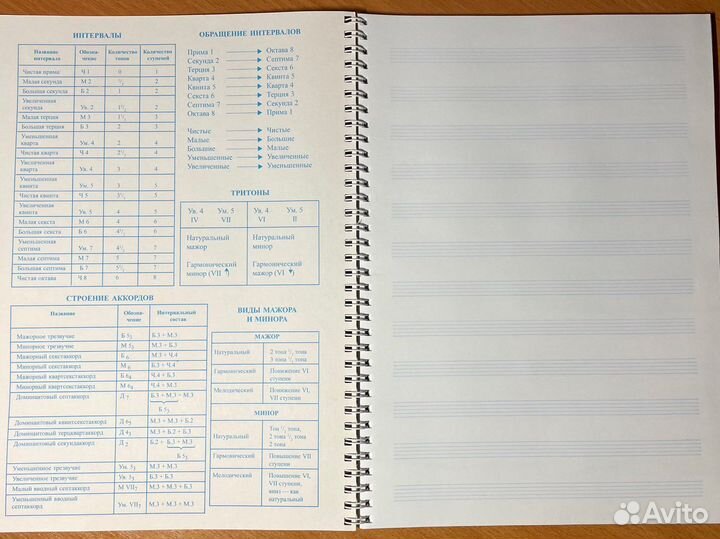 ИНТЕРВАЛЫ
Название интервала Обозна-чение Количество тонов Количество ступеней
Чистая прима Ч 1 0 1
Малая секунда М 2 1/2 2
Большая секунда Б 2 1 2
Увеличенная
секунда Ув. 2 1 1/2 2
Малая терция М 3 1 1/2 3
Большая терция Б 3 2 3
Уменьшенная
кварта Ум. 4 2 4
Чистая кварта Ч 4 2 1/2 4
Увеличенная
кварта Ув. 4 3 4
Уменьшенная
квинта Ум. 5 3 5
Чистая квинта Ч 5 3 1/2 5
Увеличенная
квинта Ув. 5 4 5
Малая секста М 6 4 6
Большая секста Б 6 4 1/2 6
Уменьшенная
септима Ум. 7 4 1/2 7
Малая септима М 7 5 7
Большая септима Б 7 5 1/2 7
Чистая октава Ч 8 6 8
ОБРАЩЕНИЕ ИНТЕРВАЛОВ
Прима 1 Октава 8
Секунда 2 Септима 7
Терция 3 Секста 6
Кварта 4 Квинта 5
Квинта 5 Кварта 4
Секста 6 Терция 3
Септима 7 Секунда 2
Октава 8 Прима 1
Чистые Чистые
Малые Большие
Большие Малые
Уменьшенные Увеличенные
Увеличенные Уменьшенные
ТРИТОНЫ
Ув. 4 Ум. 5 Ув. 4 Ум. 5
IV VII VI II
Натуральный Натуральный
мажор минор
Гармонический Гармонический
минор (VII ) мажор (VI )
СТРОЕНИЕ АККОРДОВ
Название Обозна-чение Интервальный состав
Мажорное трезвучие Б 53 Б.3 + М.3
Минорное трезвучие М 53 М.3 + Б.3
Мажорный секстаккорд Б 6 М.3 + Ч.4
Минорный секстаккорд М 6 Б.3 + Ч.4
Мажорный квартсекстаккорд Б 64 Ч.4 + Б.3
Минорный квартсекстаккорд М 64 Ч.4 + М.3
Доминантовый септаккорд Д 7 Б.3 + М.3 + М.3
Б 53
Доминантовый квинтсекстаккорд Д 65 М.3 + М.3 + Б.2
Доминантовый терцквартаккорд Д 43 М.3 + Б.2 + Б.3
Доминантовый секундаккорд Д 2 Б.2 + Б.3 + М.3
Б 53
Уменьшенное трезвучие Ум. 53 М.3 + М.3
Увеличенное трезвучие Ув. 53 Б.3 + Б.3
Малый вводный
септаккорд М VII7 М.3 + М.3 + Б.3
Уменьшенный вводный
септаккорд Ум. VII7 М.3 + М.3 + М.3
ВИДЫ МАЖОРА
И МИНОРА
МАЖОР
Натуральный 2 тона 1/2 тона
3 тона 1/2 тона
Гармонический Понижение VI
ступени
Мелодический Понижение VI,
VII ступени
МИНОР
Натуральный Тон 1/2 тона,
2 тона 1/2 тона
2 тона
Гармонический Повышение VII
ступени
Мелодический Повышение VI,
VII ступени,
вниз — как
натуральный
Avito